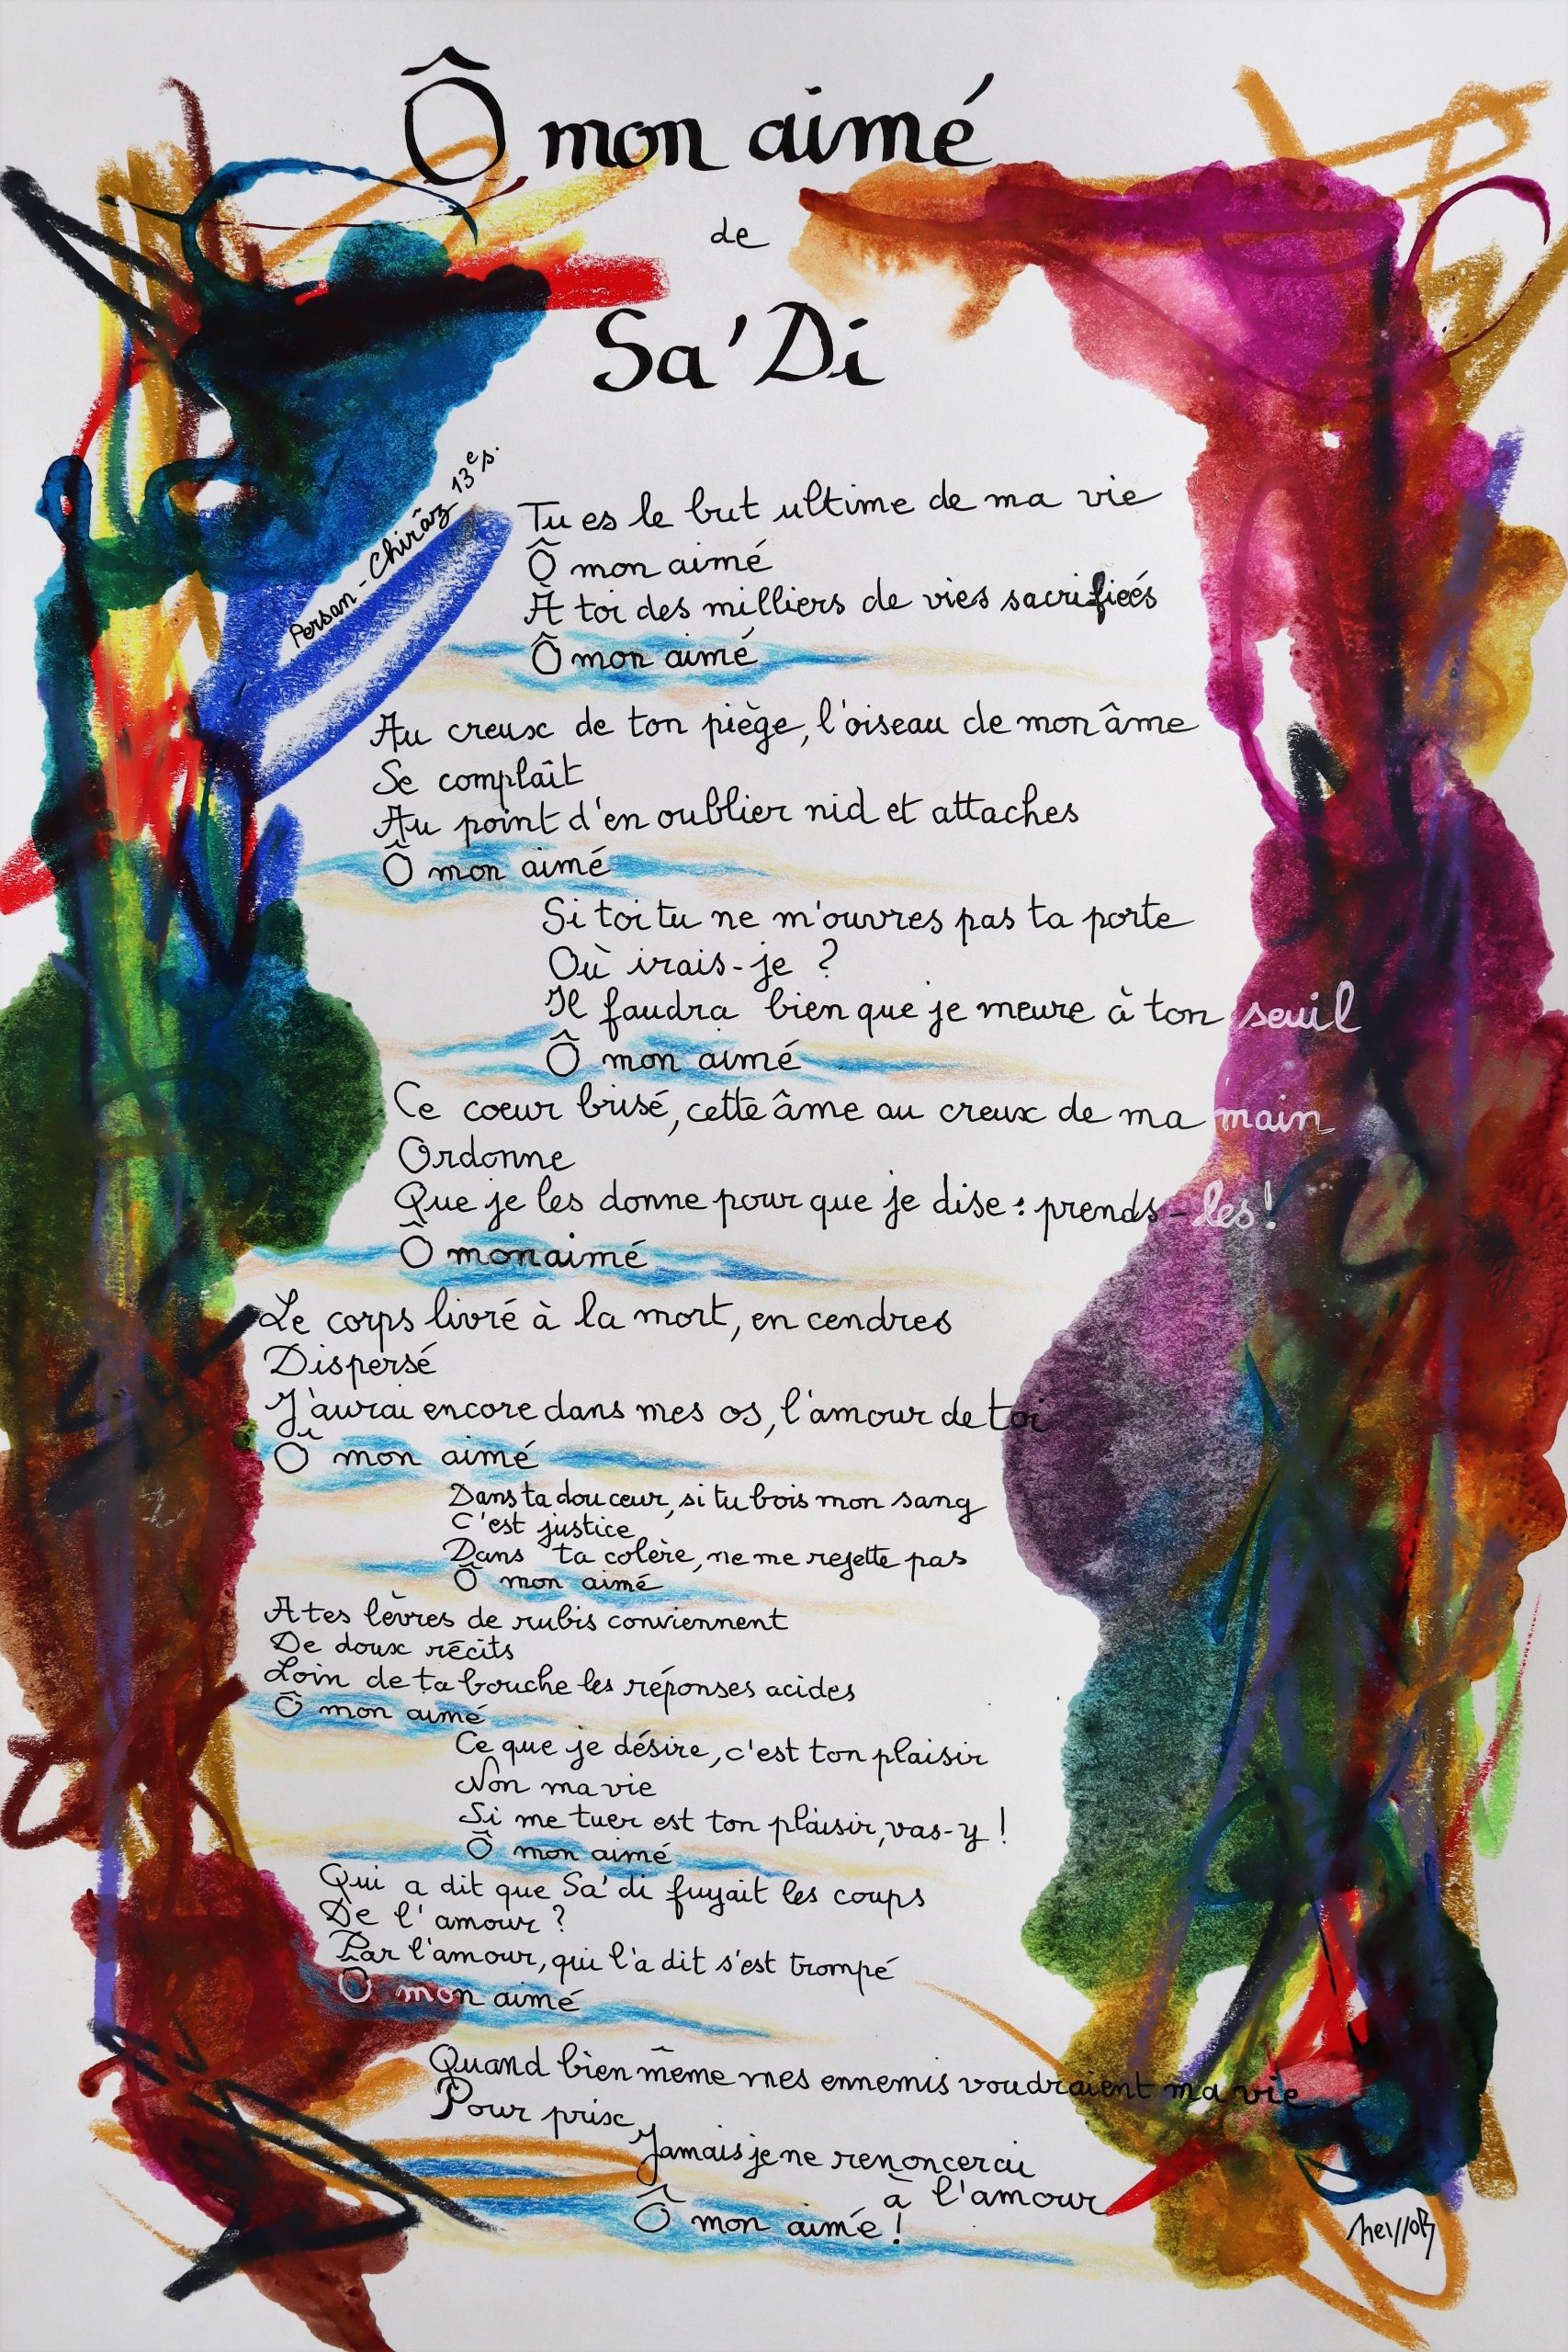 Ô mon aimé
de
Sa'Di
Persan - Chirâz 13e s.
Tu es le but ultime de ma vie
Ô mon aimé
À toi des milliers de vies sacrifiées
Ô mon aimé
Au creux de ton piège, l'oiseau de mon âme
Se complaît
Au point d'en oublier nid et attaches
Ô mon aimé
Si toi tu ne m'ouvres pas ta porte
Où irais-je ?
Il faudra bien que je meure à ton seuil
Ô mon aimé
Ce coeur brisé, cette âme au creux de ma main
Ordonne
Que je les donne pour que je dise : prends-les !
Ô mon aimé
Le corps livré à la mort, en cendres
Dispersé
J'aurai encore dans mes os, l'amour de toi
Ô mon aimé
Dans ta douceur, si tu bois mon sang
C'est justice
Dans ta colère, ne me rejette pas
Ô mon aimé
A tes lèvres de rubis conviennent
De doux récits
Loin de ta bouche les réponses acides
Ô mon aimé
Ce que je désire, c'est ton plaisir
Non ma vie
Si me tuer est ton plaisir, vas-y !
Ô mon aimé
Qui a dit que Sa'di fuyait les coups
De l'amour ?
Par l'amour, qui l'a dit s'est trompé
Ô mon aimé
Quand bien même mes ennemis voudraient ma vie
Pour prix
Jamais je ne renoncerai
à l'amour
Ô mon aimé !